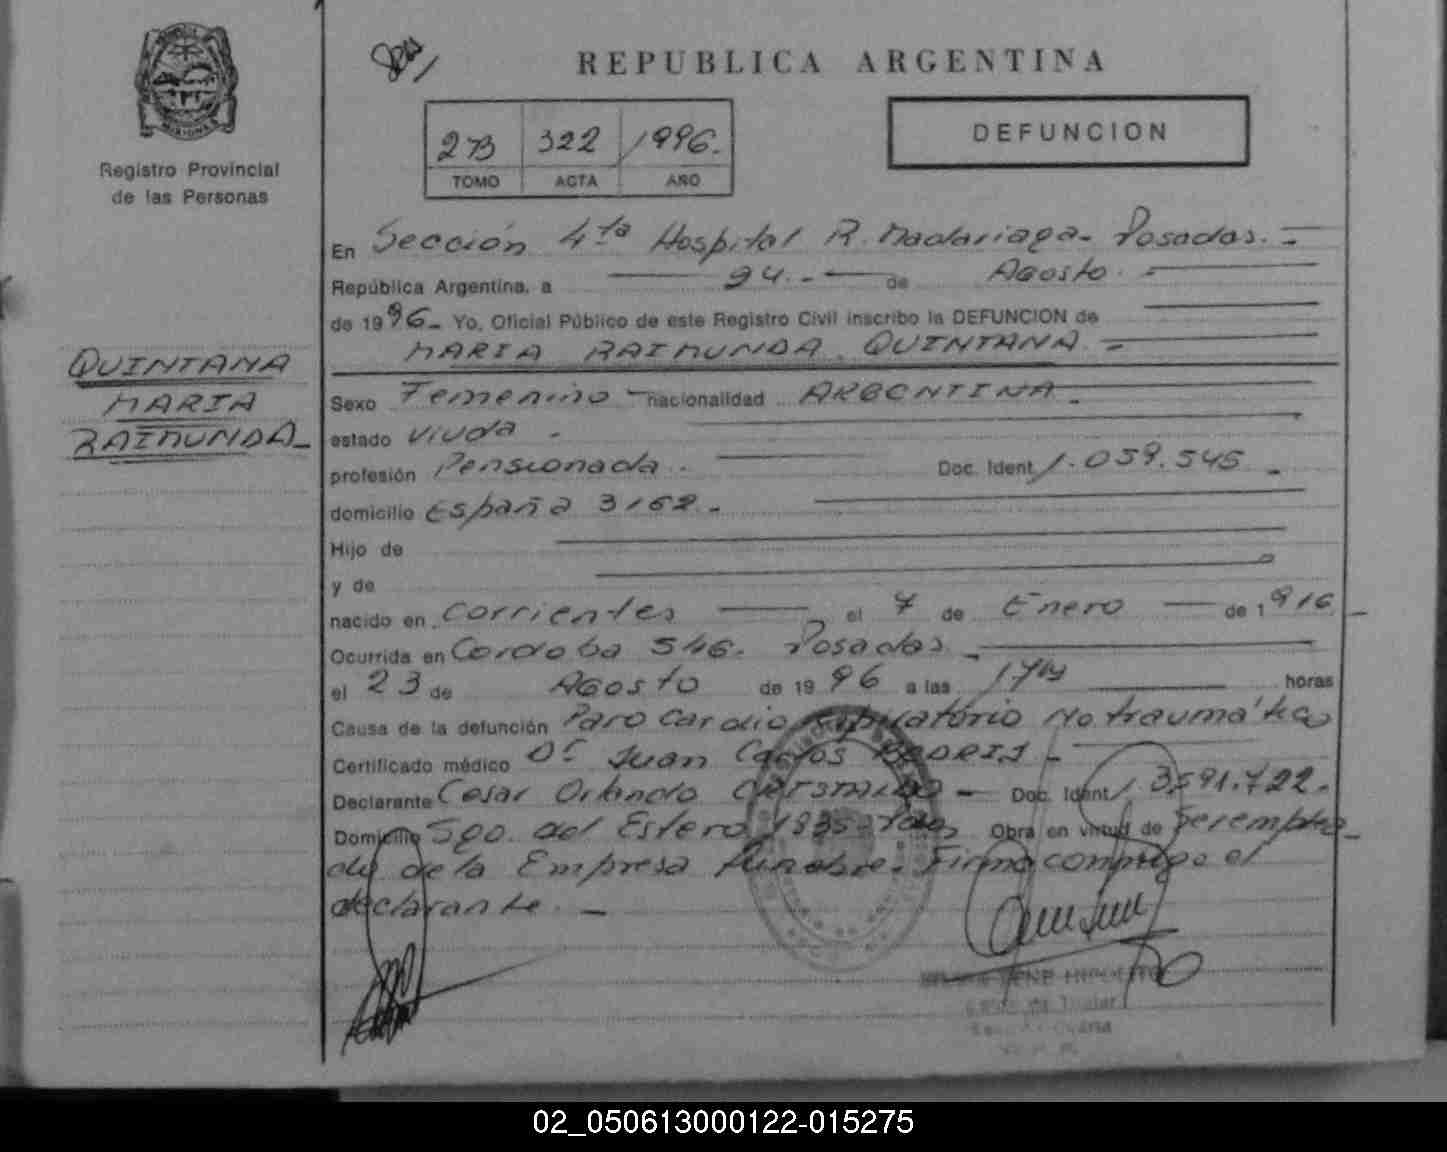 REPUBLICA ARGENTINA
MISIONES
Registro Provincial
de las Personas
273 322 1996.
TOMO ACTA AÑO
DEFUNCION
En Sección 4ta Hospital R. Madariaga - Posadas. -
República Argentina, a 24. - de Agosto. -
de 1996 - Yo, Oficial Público de este Registro Civil inscribo la DEFUNCION de
MARIA RAIMUNDA QUINTANA. -
QUINTANA
MARIA
RAIMUNDA -
Sexo Femenino - nacionalidad ARGENTINA -
estado Viuda -
profesión Pensionada - Doc. Ident 1.059.545 -
domicilio España 3162. -
Hijo de
y de
nacido en Corrientes el 7 de Enero de 1916 -
Ocurrida en Cordoba 546. Posadas -
el 23 de Agosto de 1996 a las horas
Causa de la defunción Paro Cardio Respiratorio No traumático
Certificado médico Dr. Juan Carlos -
Declarante Cesar Orlando - Doc. Ident
Domicilio Sgo. del Estero 1835 - Obra en virtud de Ser emplea -
do de la Empresa Funebre. Firma conmigo el
declarante. -
02_050613000122-015275